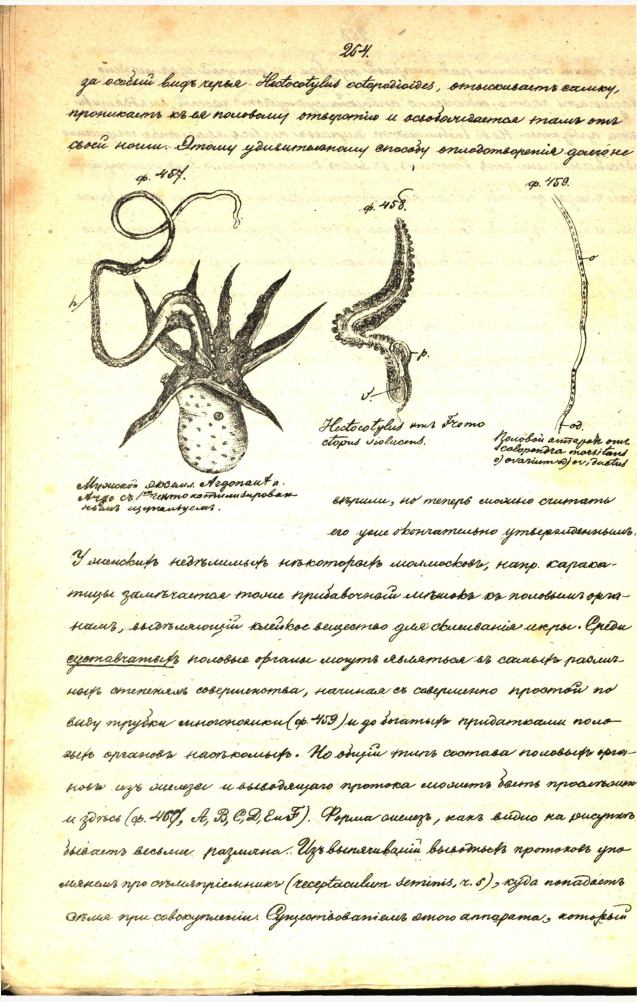 254.
за особый видъ червя - Hectocotylus octopodioides, отыскиваетъ самку,
проникаетъ къ ея половому отверстію и освобождается тамъ отъ
своей ноши. Этому удивительному способу оплодотворенія долго не
ф. 457.
ф. 458.
ф. 459.
h
o
p.
d
od.
Hectocotylus отъ Tremo
ctopus violaceus.
Половой аппаратъ отъ
Scolopendra morsitans
o) ovarium od) oviductus
Мужской экземп. Argonauta
Argo съ гектокотилизирован-
нымъ щупальцемъ.
вѣрили, но теперь можно считать
его уже окончательно утвержденнымъ.
У женскихъ недѣлимыхъ нѣкоторыхъ моллюсковъ, напр. карака-
тицы замѣчается тоже прибавочный мѣшокъ къ половымъ орга-
намъ, выдѣляющій клейкое вещество для склеиванія икры. Среди
суставчатыхъ половые органы могутъ являться въ самыхъ различ-
ныхъ степеняхъ совершенства, начиная съ совершенно простой по
виду трубки многоножки (ф. 459) и до богатыхъ придатками поло-
выхъ органовъ насѣкомыхъ. Но общій типъ состава половыхъ орга-
новъ изъ железы и выводящаго протока можетъ быть прослѣженъ
и здѣсь (ф. 467, A, B, C, D, E и F). Форма железъ, какъ видно на рисункѣ
бываетъ весьма различна. Изъ выпячиваній выводныхъ протоковъ упо-
мянемъ про сѣмяпріемникъ (receptaculum seminis, r. s), куда попадаетъ
сѣмя при совокупленіи. Существованіемъ этого аппарата, который